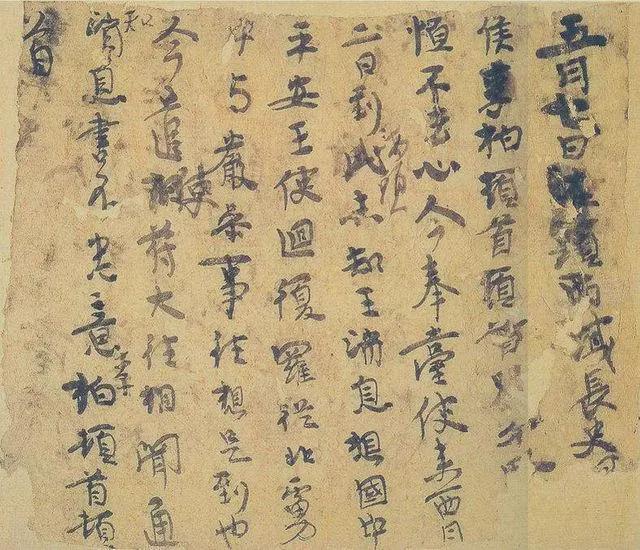 五月七日海頭西域長史
侯李柏頓首頓首別
恒不去心今奉臺使來西月
海頭
二日到此未知王消息想國中
平安王使迴復羅從北虜
中與嚴參事往想是到也
今遣使苻大往相聞通
知消息書不悉意李柏頓首頓
首